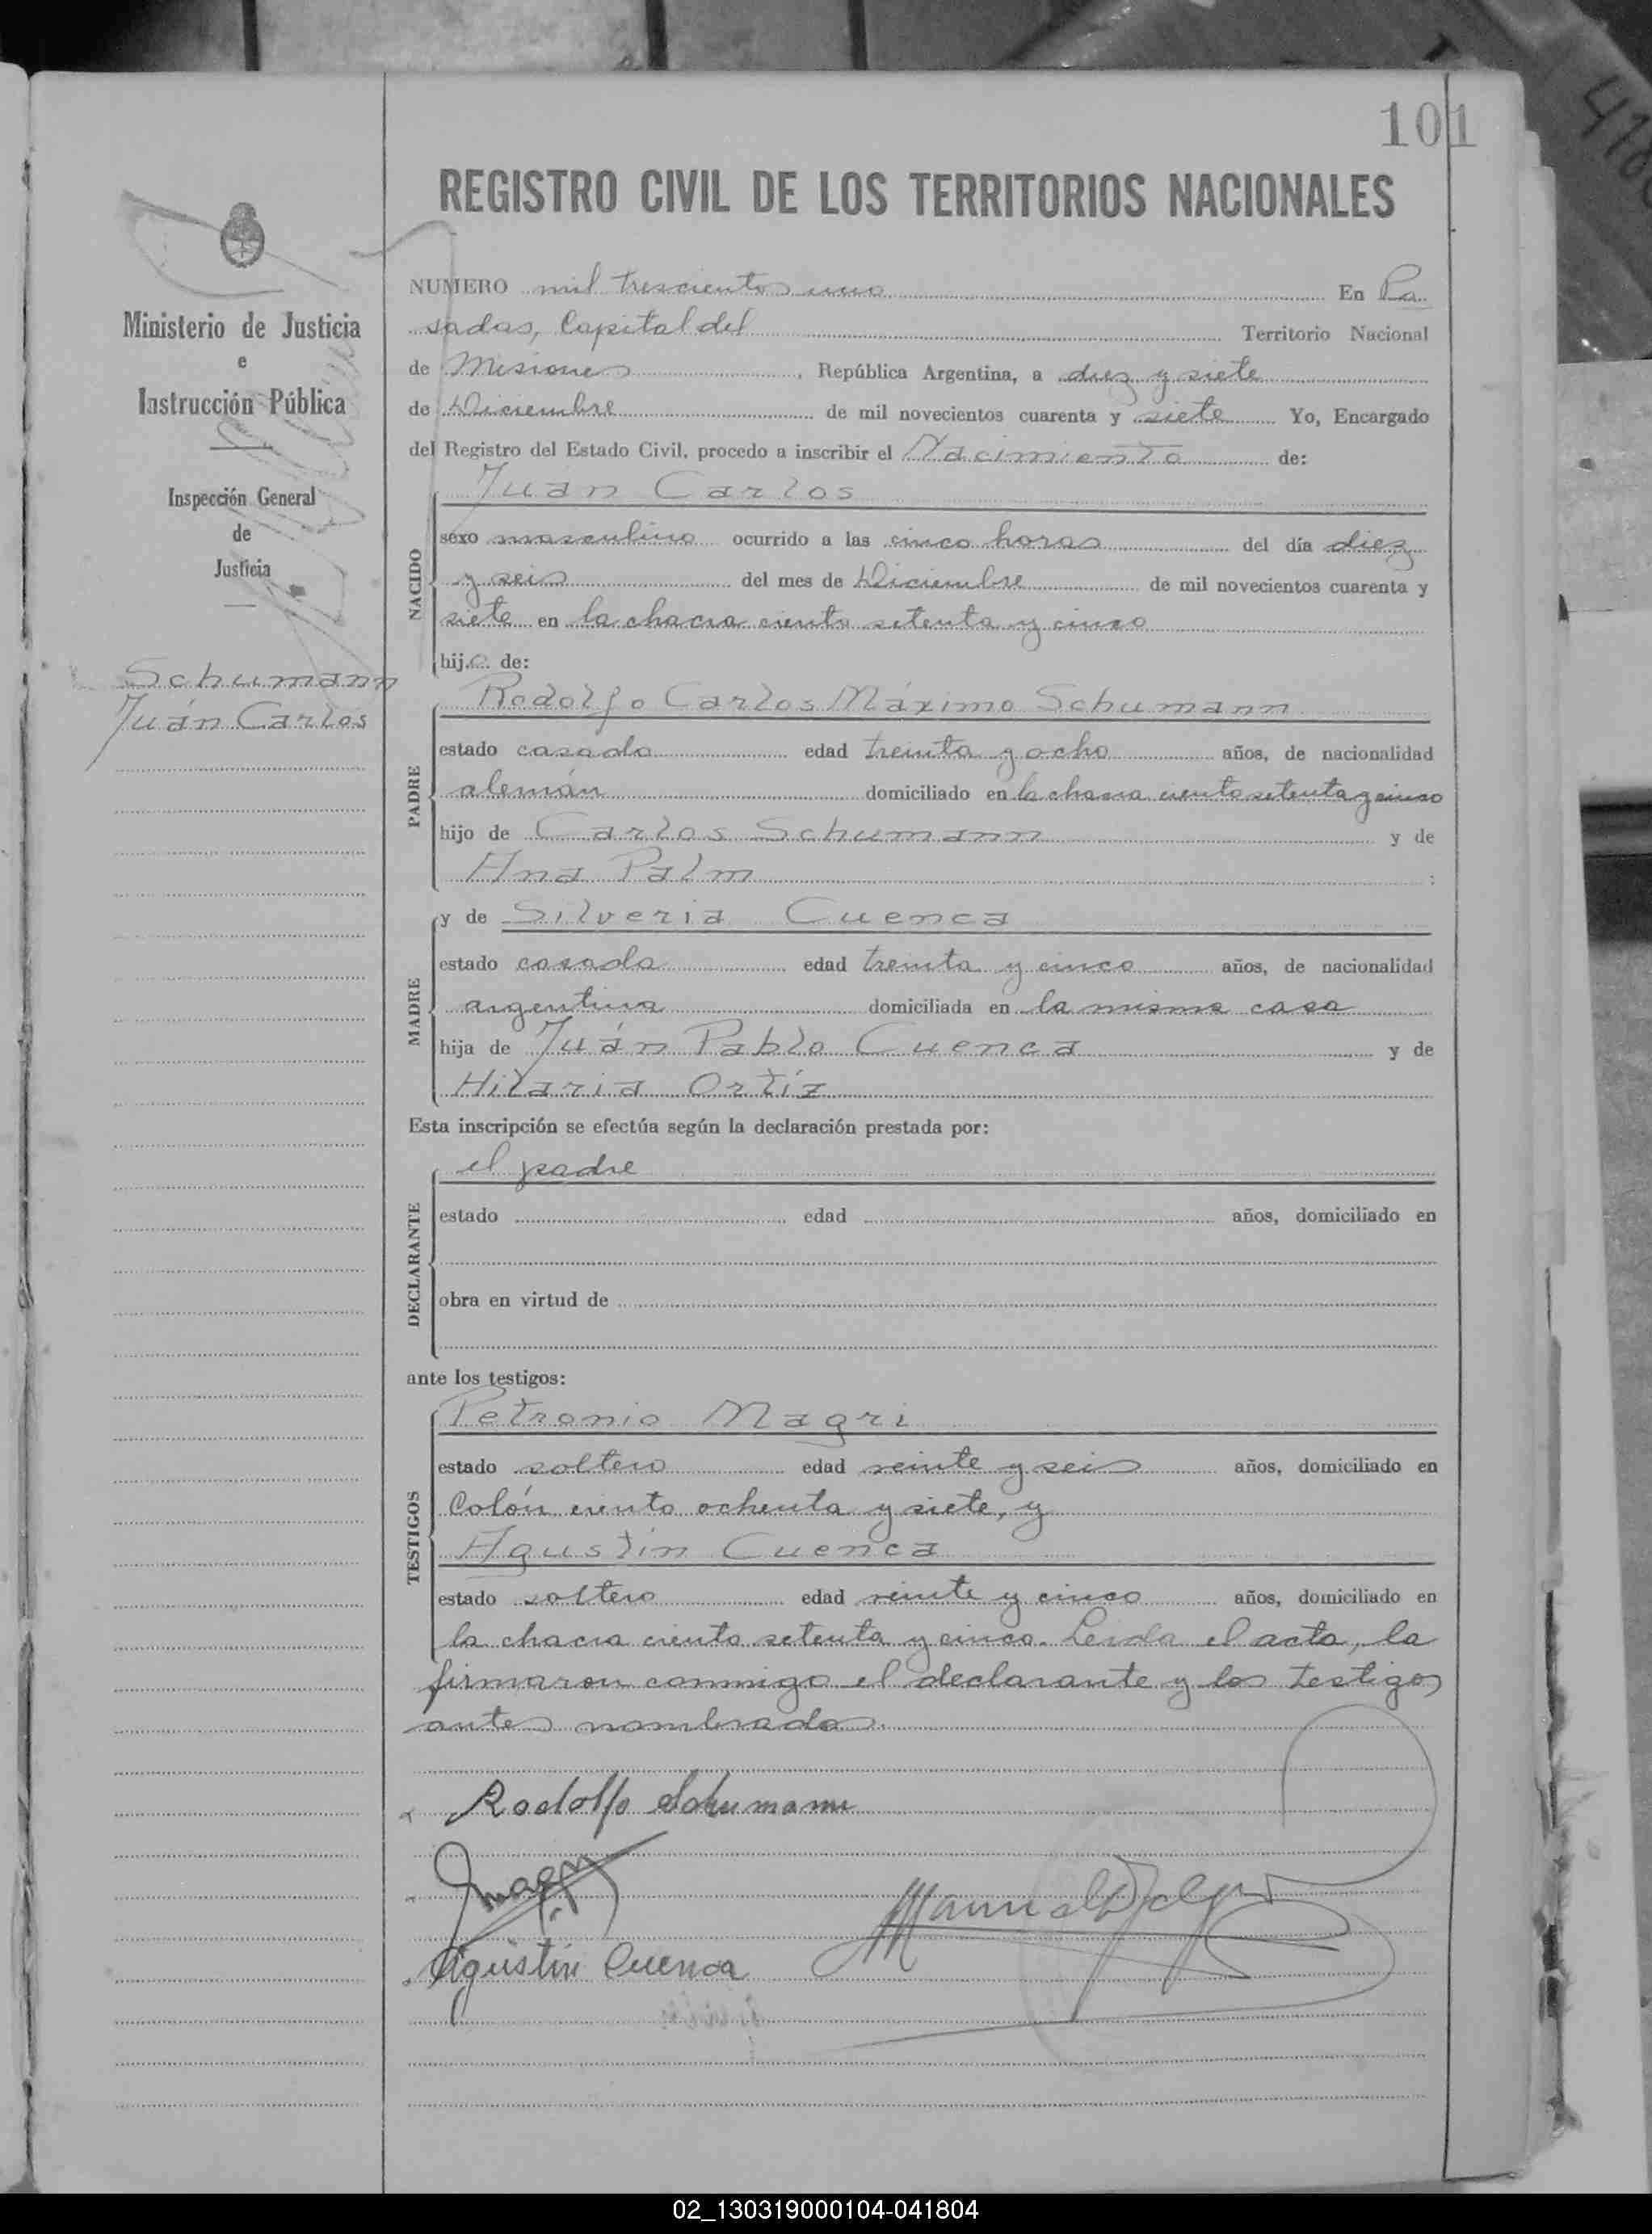 101
REGISTRO CIVIL DE LOS TERRITORIOS NACIONALES
Ministerio de Justicia
e
Instrucción Pública
Inspección General
de
Justicia
Schumann
Juán Carlos
NUMERO mil trescientos uno En Po
sadas, Capital del Territorio Nacional
de Misiones, República Argentina, a diez y siete
de Diciembre de mil novecientos cuarenta y siete Yo, Encargado
del Registro del Estado Civil, procedo a inscribir el Nacimiento de:
NACIDO
Juán Carlos
sexo masculino ocurrido a las cinco horas del día diez
y seis del mes de Diciembre de mil novecientos cuarenta y
siete en la chacra ciento setenta y cinco
hijo de:
PADRE
Rodolfo Carlos Máximo Schumann
estado casado edad treinta y ocho años, de nacionalidad
alemán domiciliado en la chacra ciento setenta y cinco
hijo de Carlos Schumann y de
Ana Palm ;
MADRE
y de Silveria Cuenca
estado casada edad treinta y cinco años, de nacionalidad
argentina domiciliada en la misma casa
hija de Juán Pablo Cuenca y de
Hilaria Ortíz
Esta inscripción se efectúa según la declaración prestada por:
DECLARANTE
el padre
estado edad años, domiciliado en
obra en virtud de
ante los testigos:
TESTIGOS
Petronio Magri
estado soltero edad veinte y seis años, domiciliado en
Colón ciento ochenta y siete, y
Agustín Cuenca
estado soltero edad veinte y cinco años, domiciliado en
la chacra ciento setenta y cinco. Leida el acta, la
firmaron conmigo el declarante y los testigos
antes nombrados.
Rodolfo Schumann
Agustin Cuenca
02_130319000104-041804